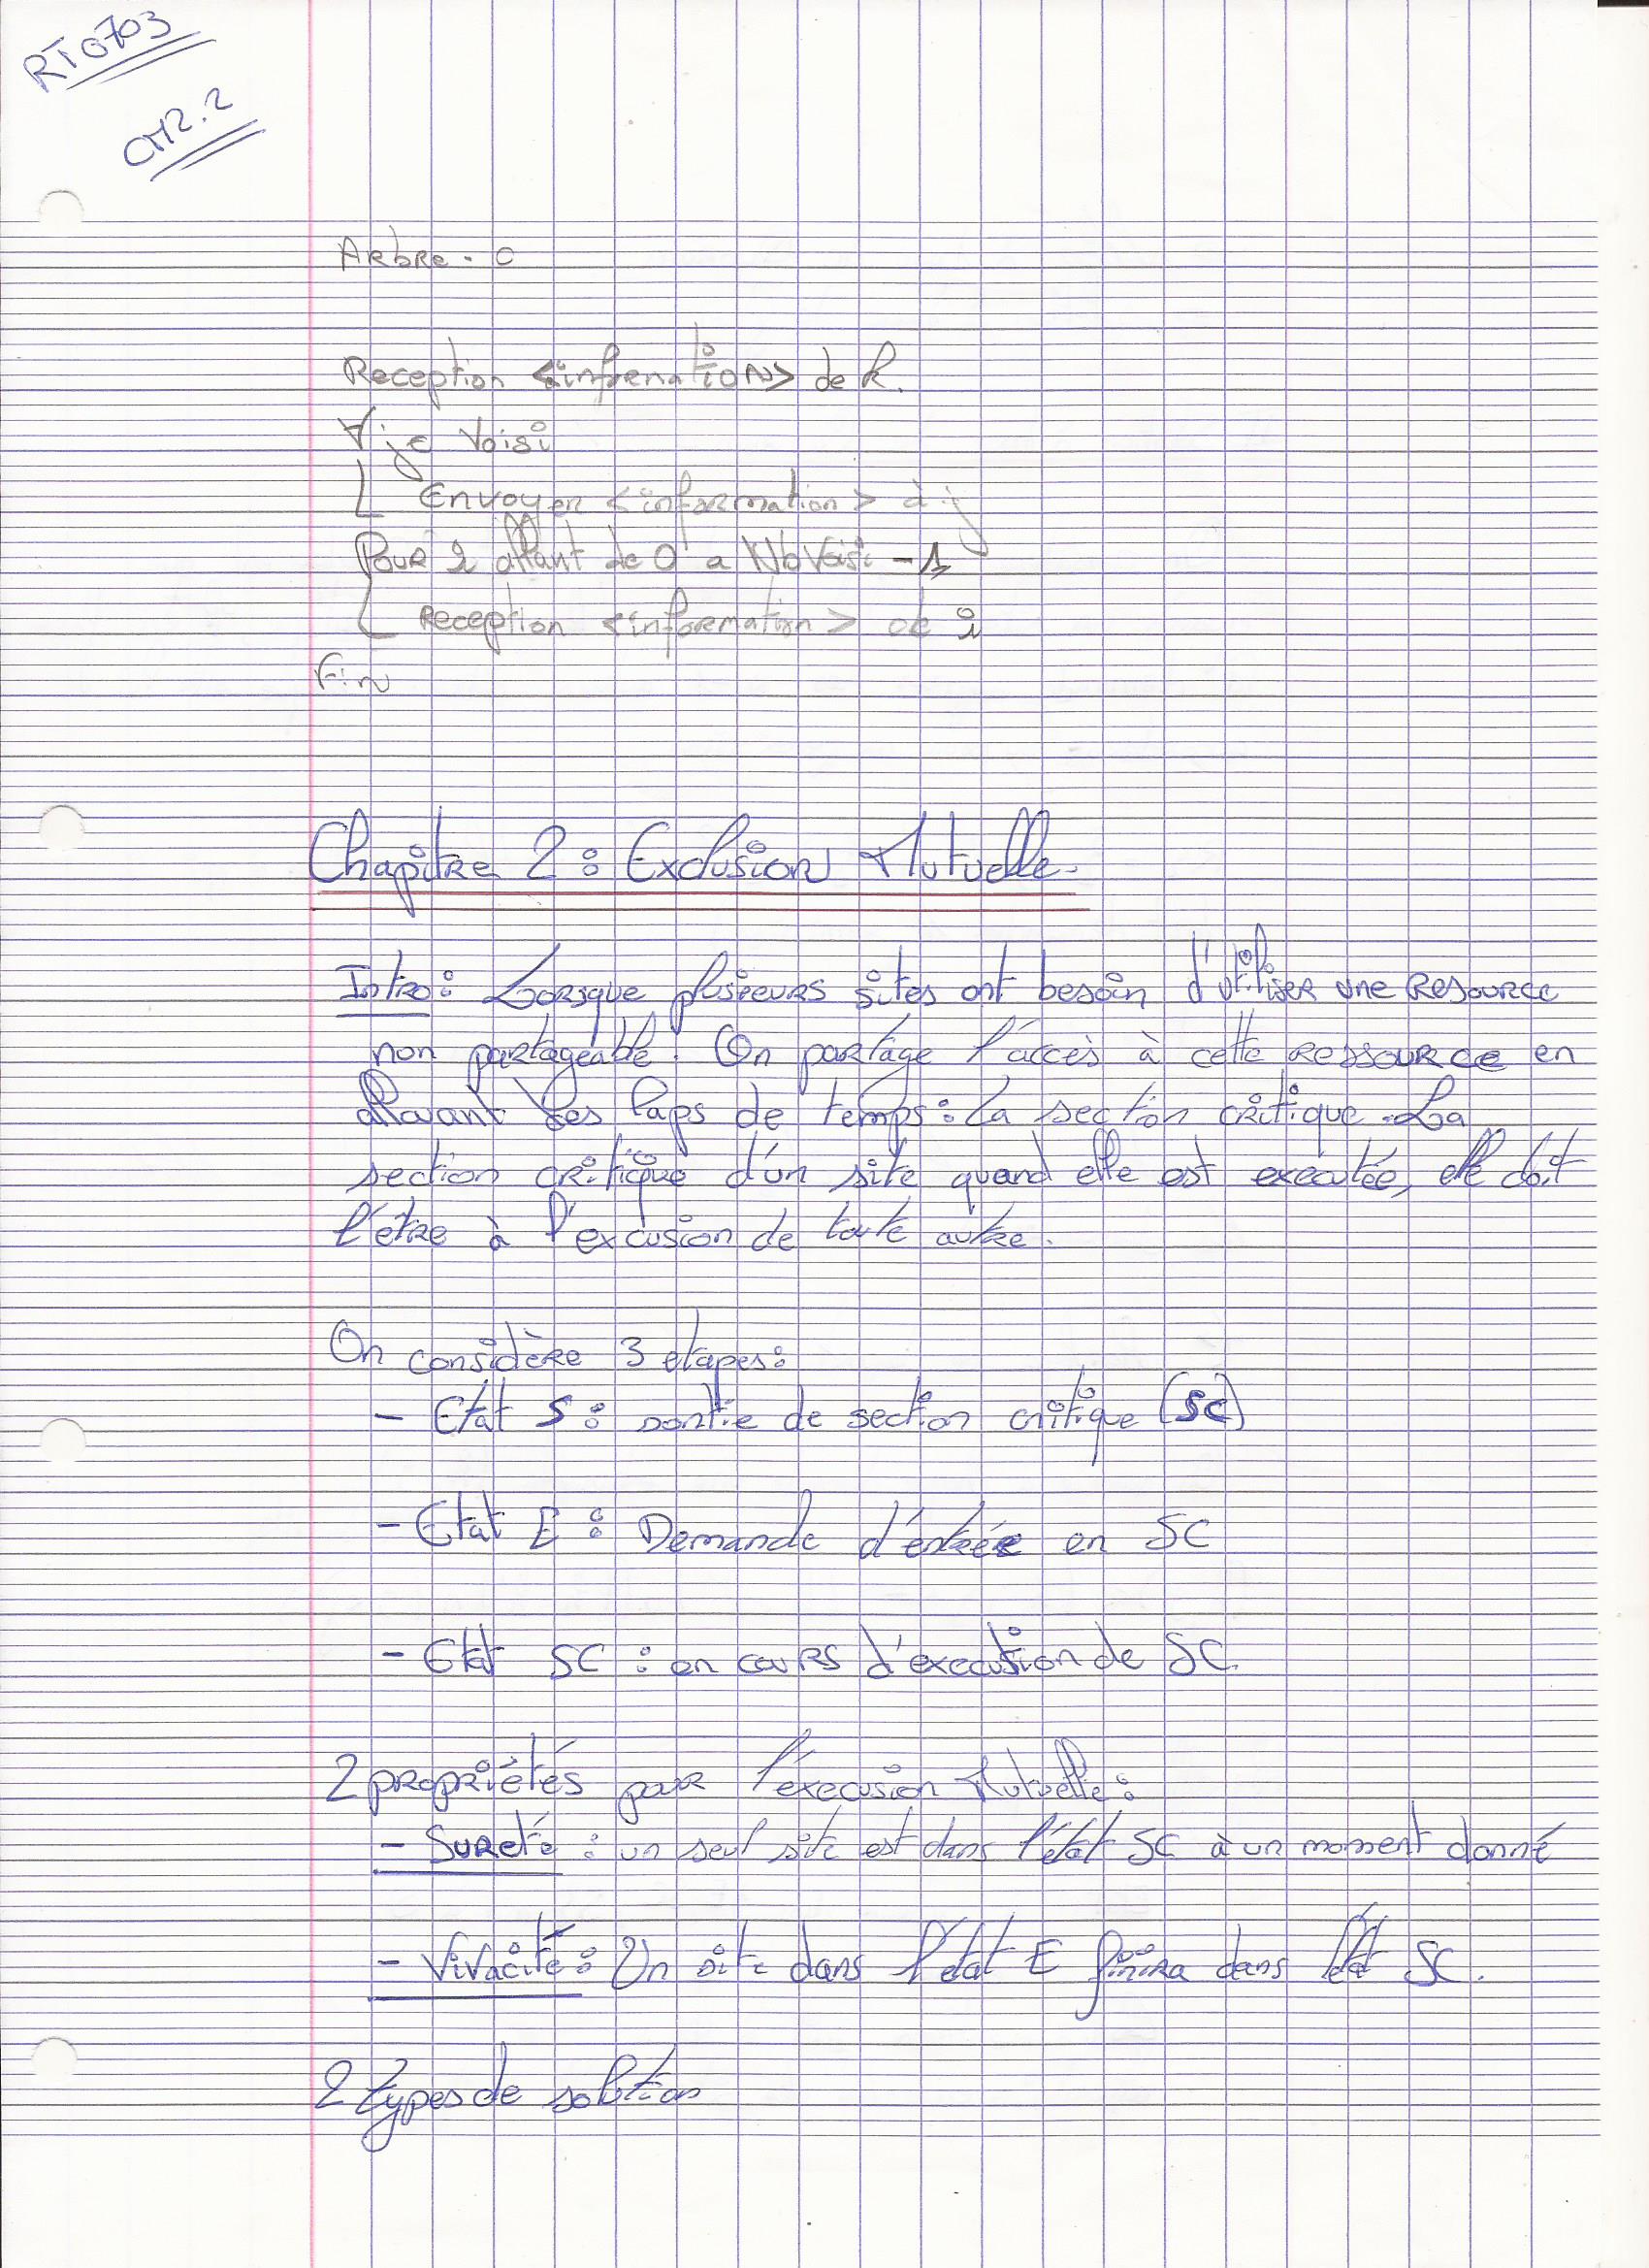 RT0703
CM2.2
Arbre - 0
Reception <information> de k.
∀ j ∈ Voisi
Envoyer <information> à j
Pour i allant de 0 a NbVoisi -1
Reception <information> de i
Fin
Chapitre 2 : Exclusion Mutuelle.
Intro : Lorsque plusieurs sites ont besoin d'utiliser une Resource
non partageable. On partage l'accès à cette ressource en
allouant des laps de temps : la section critique. La
section critique d'un site quand elle est executée, elle doit
l'etre à l'excusion de toute autre.
On considère 3 etapes :
- Etat S : sortie de section critique (SC)
- Etat E : Demande d'entrée en SC
- Etat SC : en cours d'execution de SC.
2 propriétés pour l'execusion Mutuelle :
- Sureté : un seul site est dans l'état SC à un moment donné
- Vivacité : Un site dans l'état E finira dans l'état SC.
2 types de solution